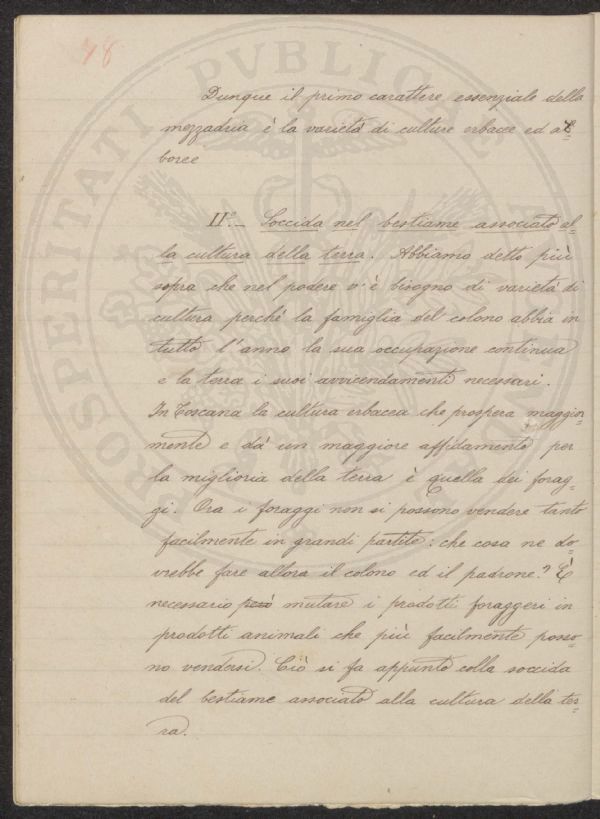 48
Dunque il primo carattere essenziale della
mezzadria è la varietà di culture erbacee ed ar=
boree
II.º_ Soccida nel bestiame associato al=
la cultura della terra. Abbiamo detto più
sopra che nel podere v'è bisogno di varietà di
cultura perché la famiglia del colono abbia in
tutto l'anno la sua occupazione continua
e la terra i suoi avvicendamenti necessari.
In Toscana la cultura erbacea che prospera maggior
mente e dà un maggiore affidamento per
la miglioria della terra è quella dei forag=
gi. Ora i foraggi non si possono vendere tanto
facilmente in grandi partite: che cosa ne do=
vrebbe fare allora il colono ed il padrone? È
necessario però mutare i prodotti foraggeri in
prodotti animali che più facilmente posso=
no vendersi. Ciò si fa appunto colla soccida
del bestiame associato alla cultura della ter=
ra.
PROSPERITATI PVBLICAE